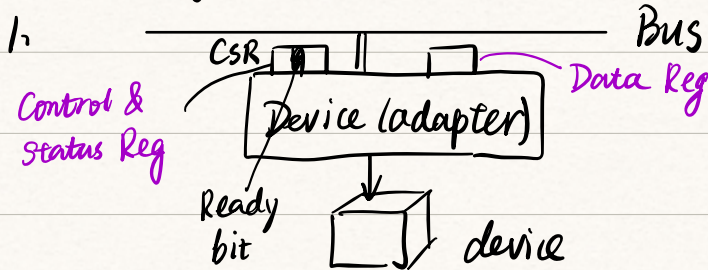 1,
Bus
CSR
Data Reg
Control &
Status Reg
Device (adapter)
Ready
bit
device